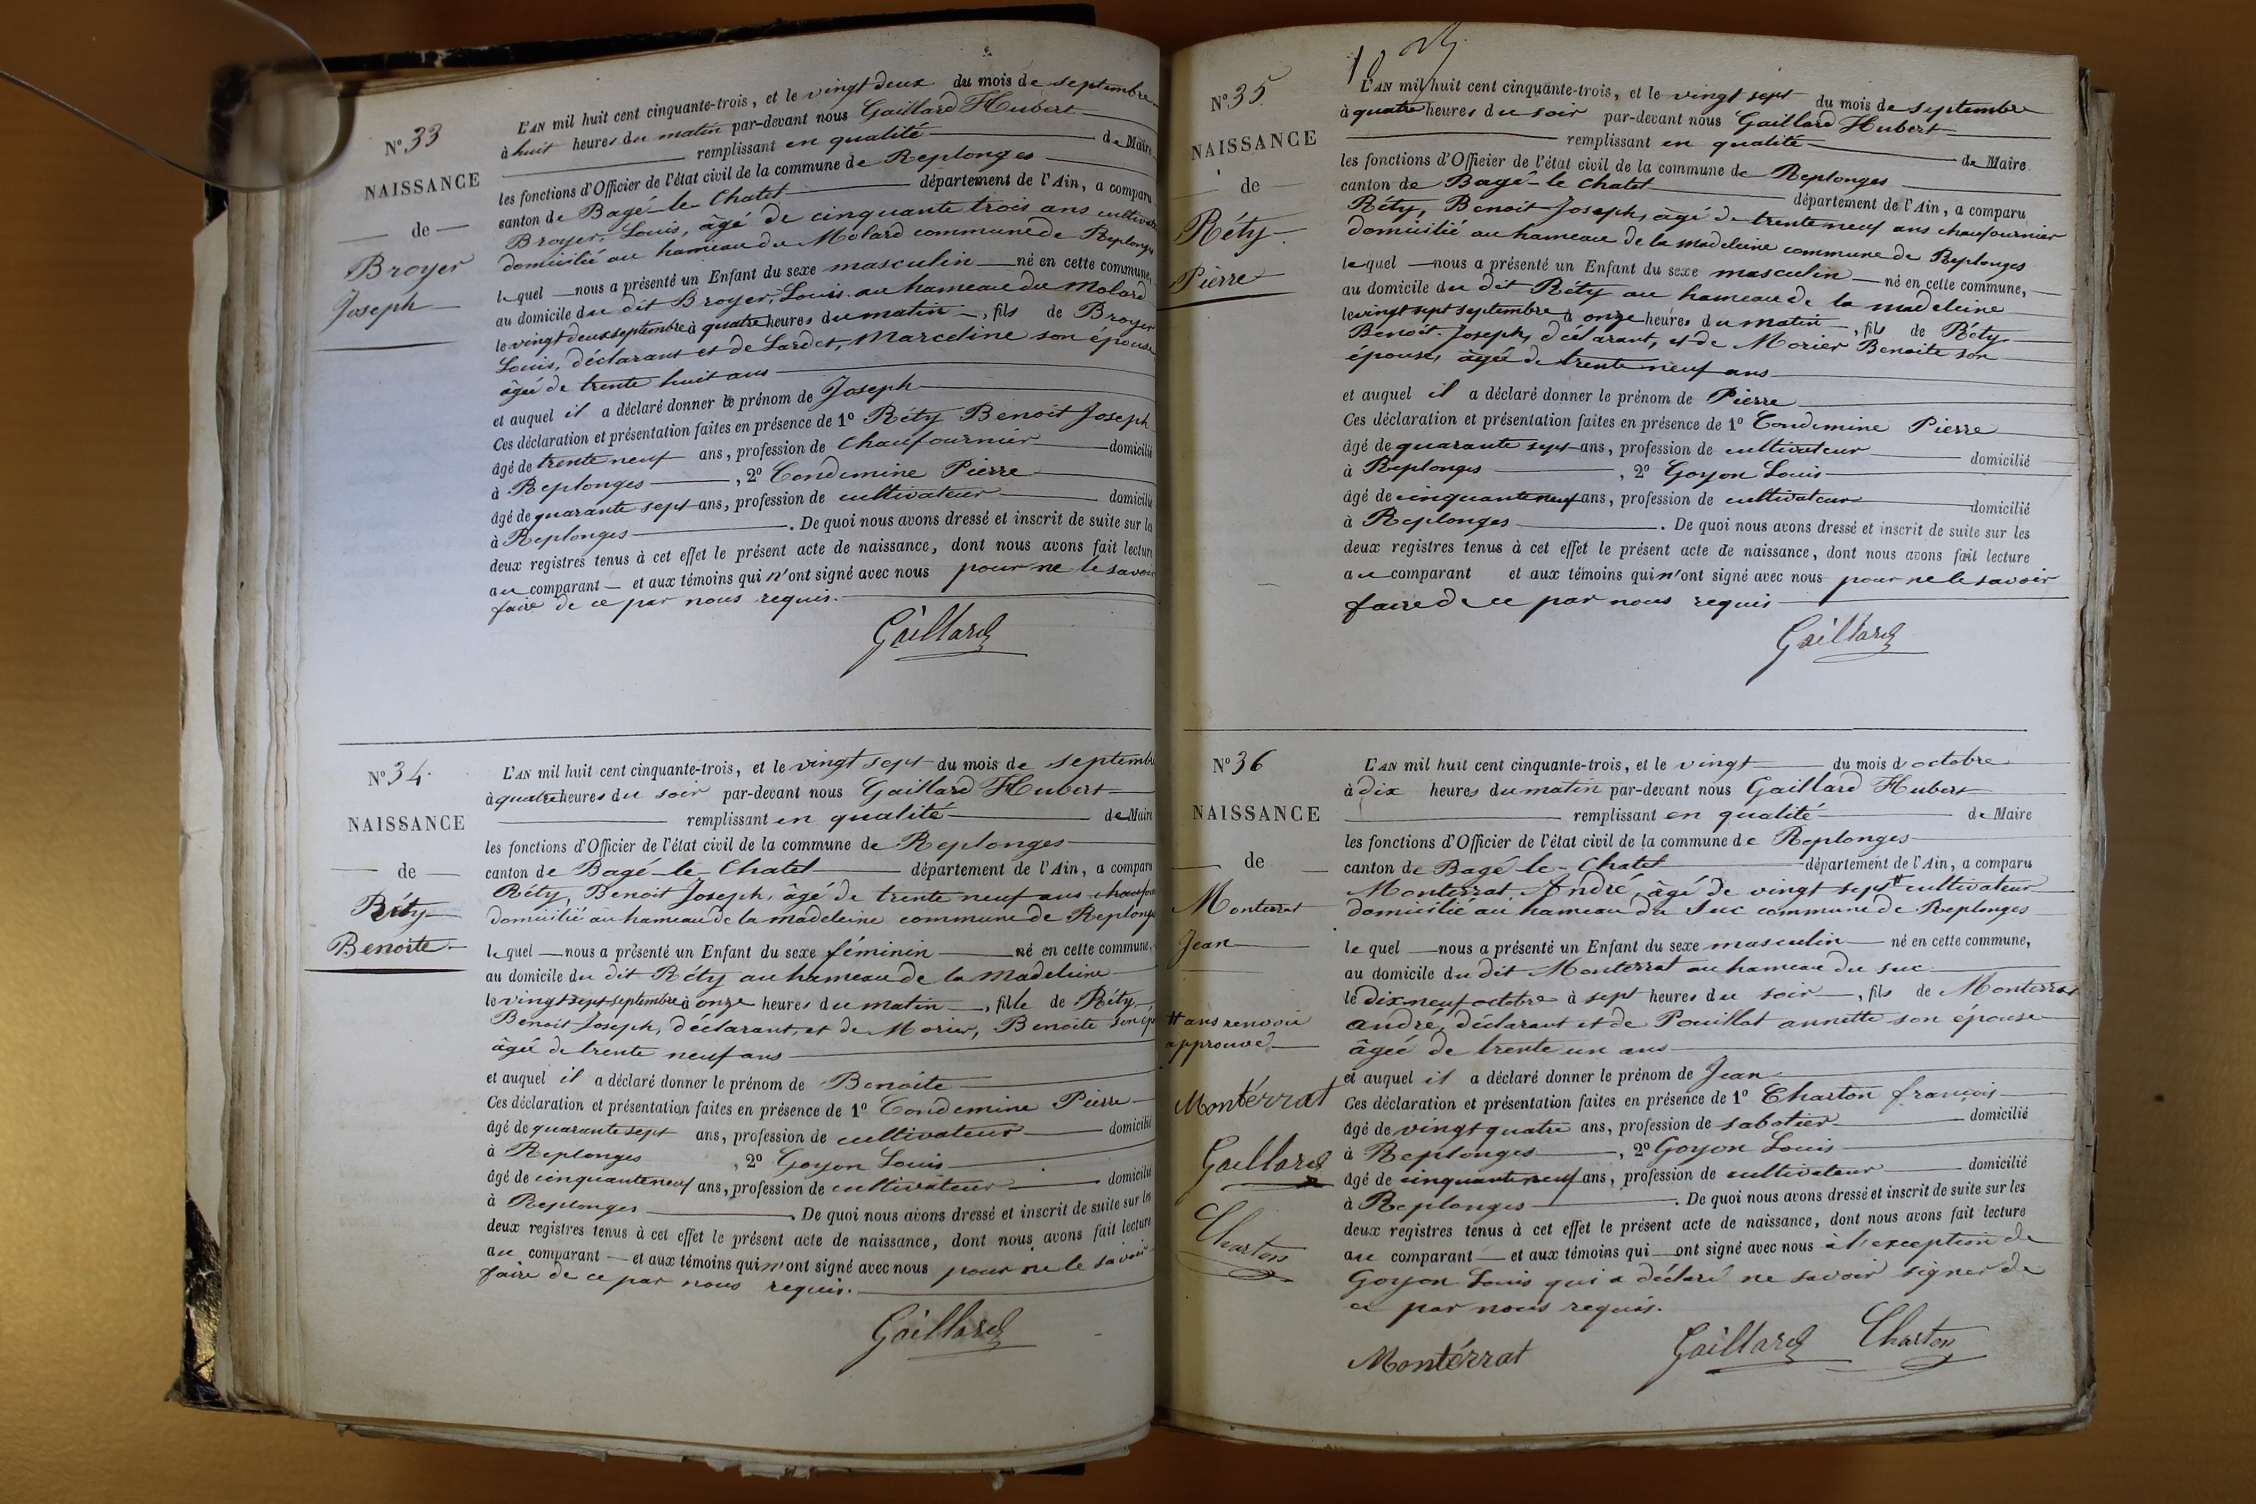 N° 33
NAISSANCE
de
Broyer
Joseph
L'AN mil huit cent cinquante-trois, et le vingt deux du mois de septembre
à huit heures du matin par-devant nous Gaillard Hubert
remplissant en qualité de Maire
les fonctions d'Officier de l'état civil de la commune de Replonges
canton de Bagé-le-Chatel département de l'Ain, a comparu
Broyer, Louis, âgé de cinquante trois ans
domicilié au hameau du Molard commune de Replonges
lequel nous a présenté un Enfant du sexe masculin né en cette commune,
au domicile du dit Broyer, Louis au hameau du Molard
le vingt deux septembre à quatre heures du matin, fils de Broyer
Louis, déclarant et de Lardet, Marceline son épouse
âgée de trente huit ans
et auquel il a déclaré donner le prénom de Joseph
Ces déclaration et présentation faites en présence de 1° Réty Benoit Joseph
âgé de trente neuf ans, profession de chaufournier domicilié
à Replonges, 2° Condemine Pierre
âgé de quarante sept ans, profession de cultivateur domicilié
à Replonges. De quoi nous avons dressé et inscrit de suite sur les
deux registres tenus à cet effet le présent acte de naissance, dont nous avons fait lecture
au comparant et aux témoins qui n'ont signé avec nous pour ne le savoir
faire de ce par nous requis.
Gaillard
N° 34
NAISSANCE
de
Réty
Benoite
L'AN mil huit cent cinquante-trois, et le vingt sept du mois de septembre
à quatre heures du soir par-devant nous Gaillard Hubert
remplissant en qualité de Maire
les fonctions d'Officier de l'état civil de la commune de Replonges
canton de Bagé-le-Chatel département de l'Ain, a comparu
Réty, Benoit Joseph, âgé de trente neuf ans
domicilié au hameau de la madeleine commune de Replonges
lequel nous a présenté un Enfant du sexe féminin né en cette commune,
au domicile du dit Réty au hameau de la Madeleine
le vingt sept septembre à onze heures du matin, fille de Réty
Benoit Joseph, déclarant, et de Morier, Benoite son
âgée de trente neuf ans
et auquel il a déclaré donner le prénom de Benoite
Ces déclaration et présentation faites en présence de 1° Condemine Pierre
âgé de quarante sept ans, profession de cultivateur domicilié
à Replonges, 2° Goyon Louis
âgé de cinquante neuf ans, profession de cultivateur domicilié
à Replonges. De quoi nous avons dressé et inscrit de suite sur les
deux registres tenus à cet effet le présent acte de naissance, dont nous avons fait lecture
au comparant et aux témoins qui n'ont signé avec nous pour ne le savoir
faire de ce par nous requis.
Gaillard
N° 35
NAISSANCE
de
Réty
Pierre
L'AN mil huit cent cinquante-trois, et le vingt sept du mois de septembre
à quatre heures du soir par-devant nous Gaillard Hubert
remplissant en qualité de Maire
les fonctions d'Officier de l'état civil de la commune de Replonges
canton de Bagé-le-Chatel département de l'Ain, a comparu
Réty, Benoit Joseph, âgé de trente neuf ans chaufournier
domicilié au hameau de la madeleine commune de Replonges
lequel nous a présenté un Enfant du sexe masculin né en cette commune,
au domicile du dit Réty au hameau de la madeleine
le vingt sept septembre à onze heures du matin, fils de Réty
Benoit Joseph, déclarant, et de Morier Benoite son
épouse, âgée de trente neuf ans
et auquel il a déclaré donner le prénom de Pierre
Ces déclaration et présentation faites en présence de 1° Condemine Pierre
âgé de quarante sept ans, profession de cultivateur domicilié
à Replonges, 2° Goyon Louis
âgé de cinquante neuf ans, profession de cultivateur domicilié
à Replonges. De quoi nous avons dressé et inscrit de suite sur les
deux registres tenus à cet effet le présent acte de naissance, dont nous avons fait lecture
au comparant et aux témoins qui n'ont signé avec nous pour ne le savoir
faire de ce par nous requis
Gaillard
N° 36
NAISSANCE
de
Monterrat
Jean
ans renvoi
approuvé
Montérrat
Gaillard
Charton
L'AN mil huit cent cinquante-trois, et le vingt du mois d'octobre
à dix heures du matin par-devant nous Gaillard Hubert
remplissant en qualité de Maire
les fonctions d'Officier de l'état civil de la commune de Replonges
canton de Bagé-le-Chatel département de l'Ain, a comparu
Monterrat, André, âgé de vingt sept cultivateur
domicilié au hameau du Suc commune de Replonges
lequel nous a présenté un Enfant du sexe masculin né en cette commune,
au domicile du dit Monterrat au hameau du suc
le dix neuf octobre à sept heures du soir, fils de Monterrat
andré, déclarant et de Pouillat annette son épouse
âgée de trente un ans
et auquel il a déclaré donner le prénom de Jean
Ces déclaration et présentation faites en présence de 1° Charton françois
âgé de vingt quatre ans, profession de sabotier domicilié
à Replonges, 2° Goyon Louis
âgé de cinquante neuf ans, profession de cultivateur domicilié
à Replonges. De quoi nous avons dressé et inscrit de suite sur les
deux registres tenus à cet effet le présent acte de naissance, dont nous avons fait lecture
au comparant et aux témoins qui ont signé avec nous à l'exception de
Goyon Louis qui a déclaré ne savoir signer de
ce par nous requis.
Montérrat Gaillard Charton